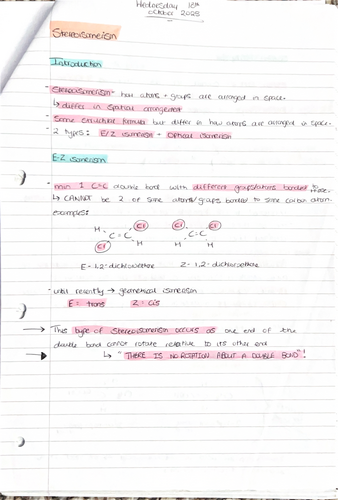 Wednesday 18th
October 2023
Stereoisomerism
Introduction
- Stereoisomerism - how atoms + groups are arranged in space.
↳ differ in spatial arrangement
- Same structural formula but differ in how atoms are arranged in space.
- 2 types: E/Z isomerism + optical isomerism
E-Z isomerism
- min 1 C=C double bond with different groups/atoms bonded to these.
↳ CANNOT be 2 of same atoms/groups bonded to same carbon atom.
examples:
H Cl Cl Cl
C=C C=C
Cl H H H
E-1,2-dichloroethene Z-1,2-dichloroethene
- until recently → geometrical isomerism
E = trans Z = cis
→ This type of stereoisomerism occurs as one end of the
double bond cannot rotate relative to its other end
→ ↳ "THERE IS NO ROTATION ABOUT A DOUBLE BOND"!